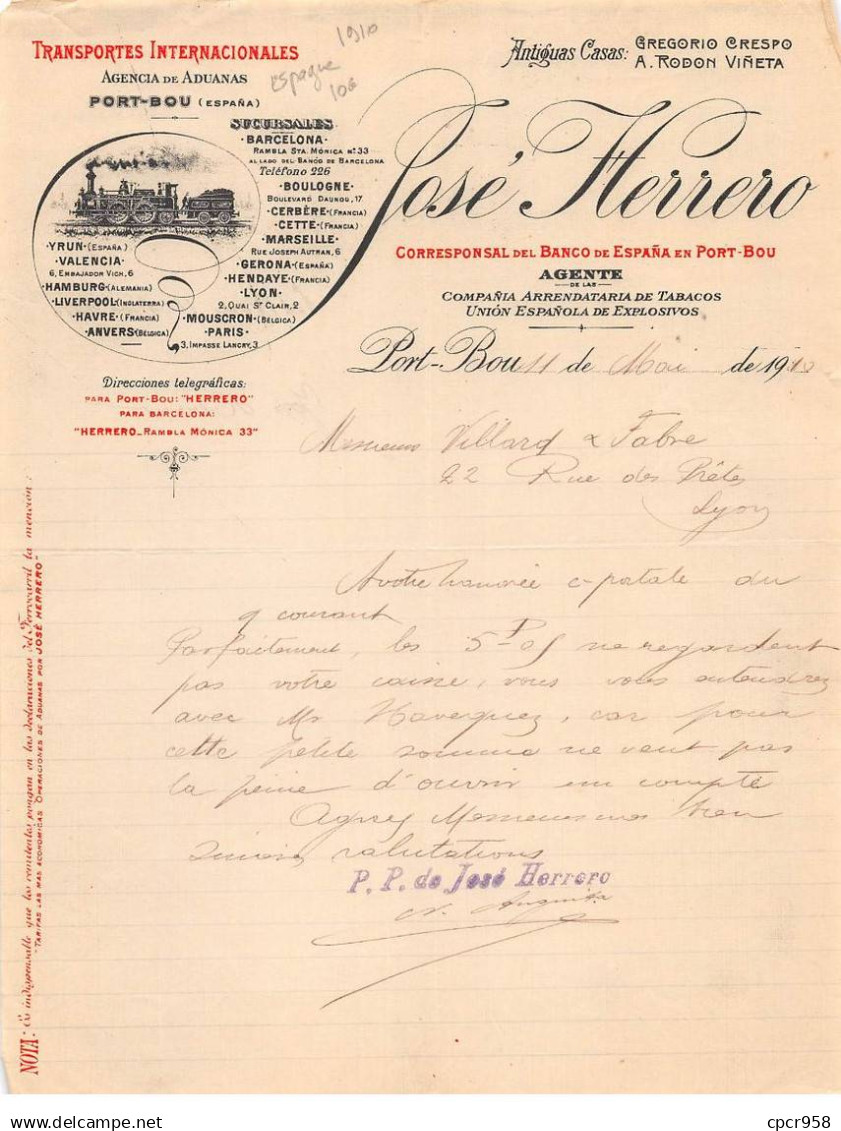 TRANSPORTES INTERNACIONALES
AGENCIA DE ADUANAS
PORT-BOU (ESPAÑA)
espagne
1910
106
Antiguas Casas: GREGORIO CRESPO
A. RODON VIÑETA
José Herrero
CORRESPONSAL DEL BANCO DE ESPAÑA EN PORT-BOU
AGENTE
DE LAS
COMPAÑIA ARRENDATARIA DE TABACOS
UNIÓN ESPAÑOLA DE EXPLOSIVOS
SUCURSALES
·BARCELONA·
RAMBLA STA. MÓNICA Nº 33
AL LADO DEL BANCO DE BARCELONA
Teléfono 226
·BOULOGNE·
BOULEVARD DAUNOU, 17
·CERBÈRE·(FRANCIA)
·CETTE·(FRANCIA)
·MARSEILLE·
RUE JOSEPH AUTRAN, 6
·GERONA·(ESPAÑA)
·HENDAYE·(FRANCIA)
·LYON·
2, QUAI ST CLAIR, 2
·MOUSCRON·(BÉLGICA)
·PARIS·
3, IMPASSE LANCRY, 3
·YRUN·(ESPAÑA)
·VALENCIA·
6, EMBAJADOR VICH, 6
·HAMBURG·(ALEMANIA)
·LIVERPOOL·(INGLATERRA)
·HAVRE·(FRANCIA)
·ANVERS·(BÉLGICA)
Direcciones telegráficas:
PARA PORT-BOU: "HERRERO"
PARA BARCELONA:
"HERRERO_RAMBLA MÓNICA 33"
Port-Bou 11 de Mai de 1910
Messieurs Villard & Fabre
22 Rue des Prêtes
Lyon
A votre honorée c-postale du
9 courant
Parfaitement, les 5 ne regardent
pas votre caisse, vous vous entendrez
avec Mr , car pour
cette petite somme ne vaut pas
la peine d'ouvrir un compte
Agréez Messieurs nos bien
sincères salutations
P. P. de José Herrero
NOTA: Es indispensable que los remitentes pongan en las declaraciones del Ferrocarril la mención:
"TARIFAS LAS MAS ECONOMICAS OPERACIONES DE ADUANAS POR JOSÉ HERRERO"
cpcr958